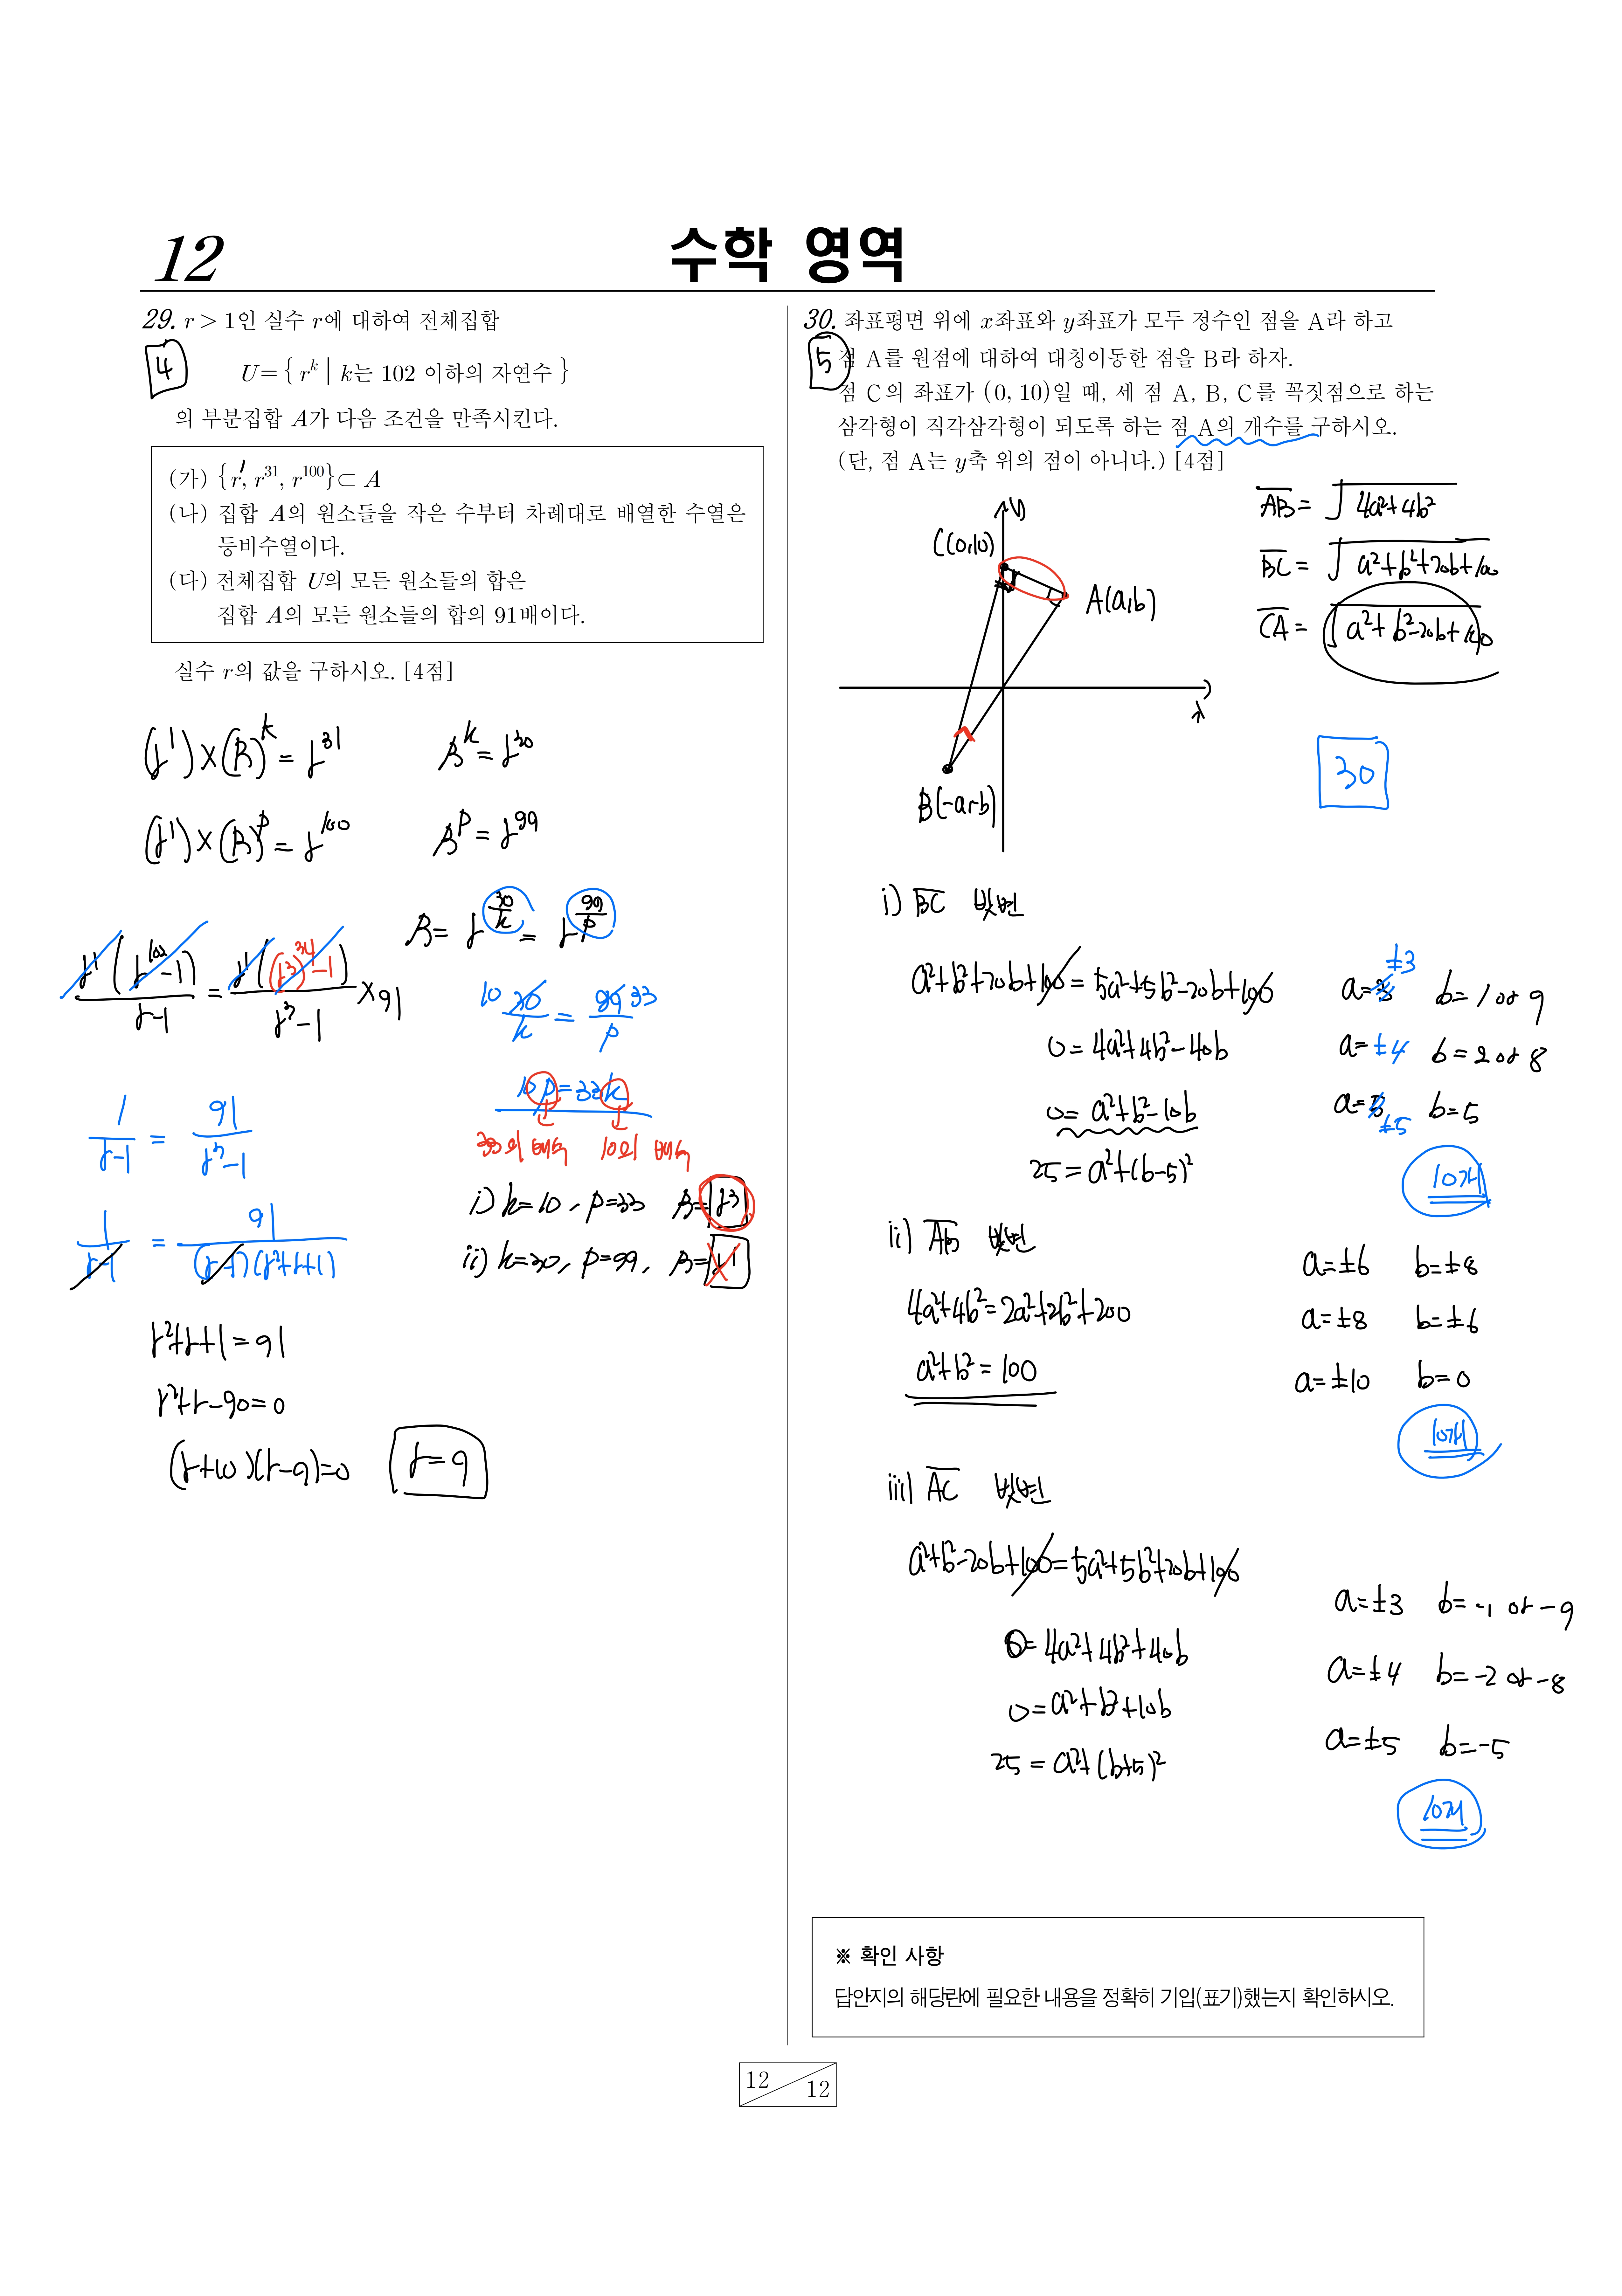 12
수학 영역
29. r > 1인 실수 r에 대하여 전체집합
4
U = { r^k | k는 102 이하의 자연수 }
의 부분집합 A가 다음 조건을 만족시킨다.
(가) {r, r^31, r^100} ⊂ A
(나) 집합 A의 원소들을 작은 수부터 차례대로 배열한 수열은
등비수열이다.
(다) 전체집합 U의 모든 원소들의 합은
집합 A의 모든 원소들의 합의 91배이다.
실수 r의 값을 구하시오. [4점]
(r^1)×(R)^k = r^31
R^k = r^30
(r^1)×(R)^p = r^100
R^p = r^99
R = r^(30/k) = r^(99/p)
r^1(r^102-1)/(r-1) = r^1((r^3)^34-1)/(r^3-1) ×91
10 30/k = 99/p 33
10p = 33k
33의 배수 10의 배수
1/(r-1) = 91/(r^3-1)
i) k=10, p=33 R=r^3
1/(r-1) = 91/((r-1)(r^2+r+1))
ii) k=30, p=99, R=r^1
r^2+r+1=91
r^2+r-90=0
(r+10)(r-9)=0
r=9
30. 좌표평면 위에 x좌표와 y좌표가 모두 정수인 점을 A라 하고
5
점 A를 원점에 대하여 대칭이동한 점을 B라 하자.
점 C의 좌표가 (0, 10)일 때, 세 점 A, B, C를 꼭짓점으로 하는
삼각형이 직각삼각형이 되도록 하는 점 A의 개수를 구하시오.
(단, 점 A는 y축 위의 점이 아니다.) [4점]
y
C(0,10)
A(a,b)
x
B(-a,-b)
AB = √(4a^2+4b^2)
BC = √(a^2+b^2+20b+100)
CA = √(a^2+b^2-20b+100)
30
i) BC 빗변
a^2+b^2+20b+100 = 5a^2+5b^2-20b+100
0=4a^2+4b^2-40b
0=a^2+b^2-10b
25=a^2+(b-5)^2
a=±3 b=1 or 9
a=±4 b=2 or 8
a=±5 b=5
10개
ii) AB 빗변
4a^2+4b^2=2a^2+2b^2+200
a^2+b^2=100
a=±6 b=±8
a=±8 b=±6
a=±10 b=0
10개
iii) AC 빗변
a^2+b^2-20b+100=5a^2+5b^2+20b+100
0=4a^2+4b^2+40b
0=a^2+b^2+10b
25=a^2+(b+5)^2
a=±3 b=-1 or -9
a=±4 b=-2 or -8
a=±5 b=-5
10개
※ 확인 사항
답안지의 해당란에 필요한 내용을 정확히 기입(표기)했는지 확인하시오.
12
12